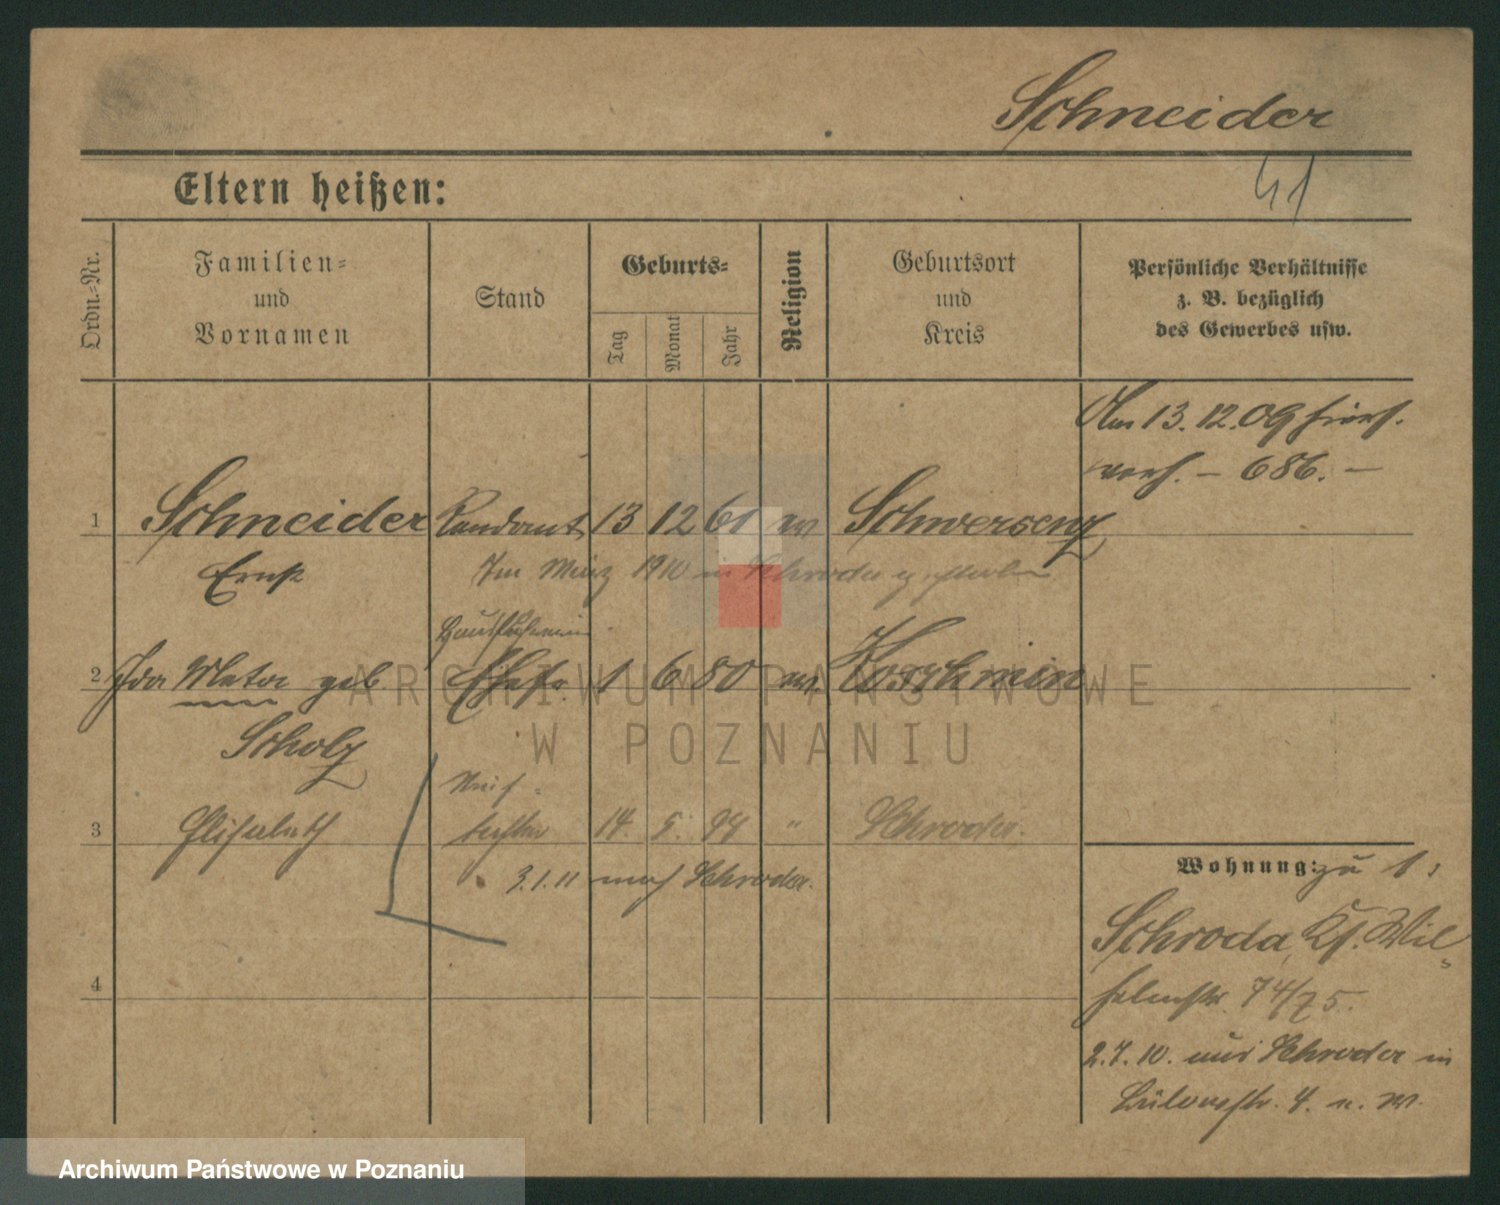 Schneider
41
Eltern heißen:
Ordn.-Nr.
Familien-
und
Vornamen
Stand
Geburts-
Tag
Monat
Jahr
Religion
Geburtsort
und
Kreis
Persönliche Verhältnisse
z. B. bezüglich
des Gewerbes usw.
Am 13. 12. 09 hiers.
verh. – 686. –
1 Schneider Rendant 13 12 61 ev Schwersenz
Ernst
Im März 1910 in Schroda gestorben
2 Ida Meta geb. Ehefr. 1 6 80 ev.
Scholz
3 Elisabeth tochter 14. 5. " Schroda.
3.1.11 nach Schroda.
4
Wohnung: zu 1:
Schroda, Ks. Wil-
helmstr. 74/75.
2.7.10. aus Schroda in
Bülowstr. 4. n. W.
ARCHIWUM PAŃSTWOWE
W POZNANIU
Archiwum Państwowe w Poznaniu